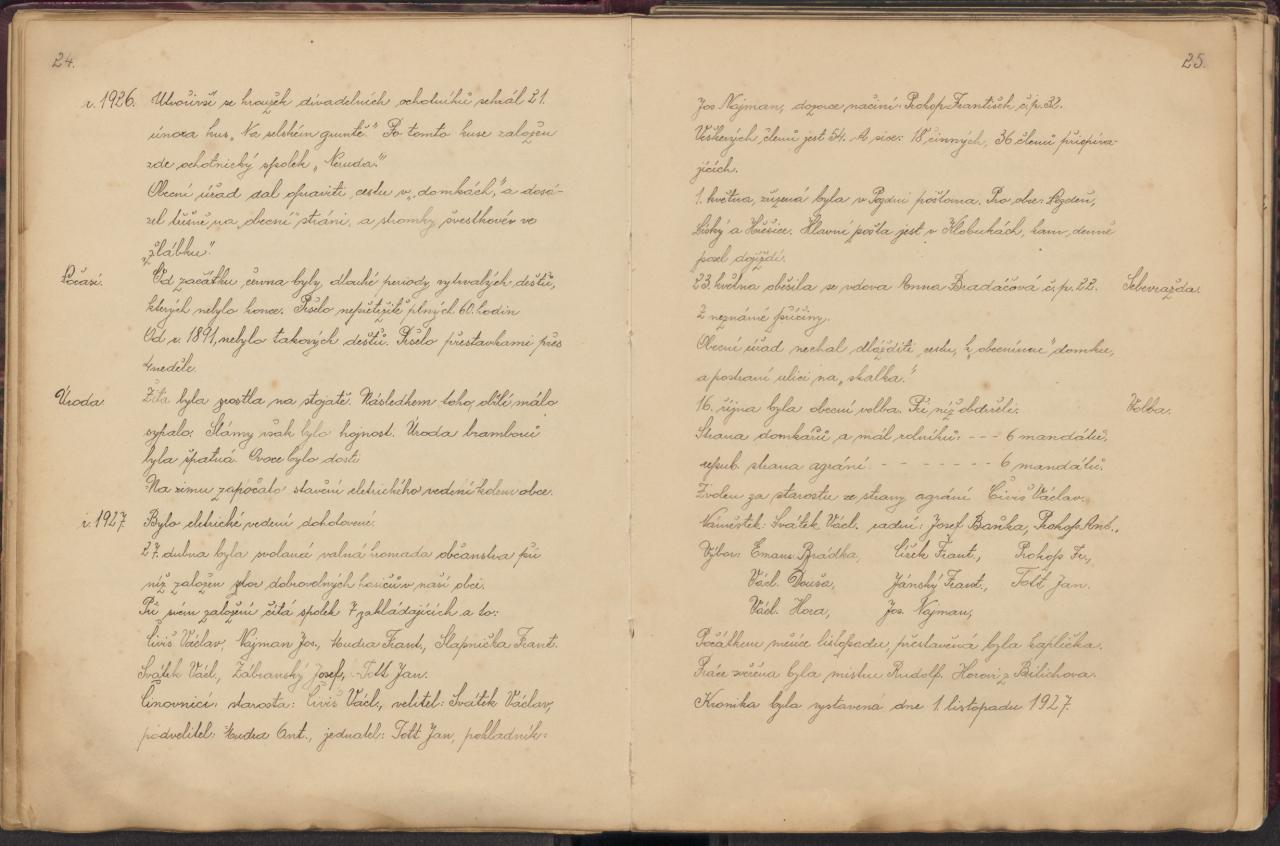 24.
r. 1926. Utvořivší se kroužek divadelních ochotníků sehrál 21.
února kus „Na selském gruntě." Po tomto kuse založen
zde ochotnický spolek „Neruda."
Obecní úřad dal opraviti cestu v „domkách," a dosá-
zel tůšně na „obecní" stráni, a stromky švestkové ve
„žlábku".
Počasí. Od začátku června byly, dlouhé periody, vytrvalých dešťů,
kterých nebylo konce. Pršelo nepřetržitě plných 60. hodin
Od r. 1891, nebylo takových dešťů. Pršelo přestavkami přes
4 neděle.
Úroda. Žita byla zrostla na stojatě. Následkem toho, obilí málo
sypalo. Slámy však bylo hojnost. Úroda bramborů
byla špatná. Ovoce bylo dosti
Na zimu započato stavění eletrického vedení kolem obce.
r. 1927 Bylo eletrické vedení dohotoveno.
27. dubna byla svolaná valná hromada občanstva při
níž založen sbor dobrovolných hasičův naší obci.
Při svém založení čítá spolek 7 zakládajících a to:
Čiviš Václav, Najman Jos., Kudra Frant., Slapnička Frant.
Svátek Václ., Zábranský Josef, Tott Jan.
Činovníci: starosta: Čiviš Václ., velitel: Svátek Václav,
podvelitel: Kudra Ant., jednatel: Tott Jan, pokladník:
25.
Jos Najman, dozorce náčiní: Prokop František č.p. 32.
Veškerých členů jest 54. A sice: 18 činných, 36 členů přispíva-
jících.
1. května, zřízená byla v Pozdni poštovna. Pro obce: Pozdeň,
Liský a Hřešice. Hlavní pošta jest v Klobukách, kam, denně
posel dojíždí.
23. května oběsila se vdova Anna Bradáčová č.p. 22. Sebevražda.
Z neznámé příčiny.
Obecní úřad nechal dlážditi cestu, k „obecnímu" domku,
a postraní ulici na „skalka."
16. října byla obecní volba. Při níž obdrželi: Volba.
Strana domkářů a mál. rolníků: - - - 6 mandátů.
repub. strana agrání - - - - - - - 6 mandátů.
Zvolen za starostu ze strany agrání Čiviš Václav.
Náměstek: Svátek Václ. radní: Josef Baňka, Prokop Ant.,
Výbor: Eman. Brádka, Císek Frant., Prokop Fr.,
Václ. Douša, Jánský Frant., Tott Jan.
Václ. Hora, Jos. Najman,
Počátkem měsíce listopadu, přestavěná byla kaplička.
Práce svěřena byla mistru Rudolf. Horovi z Bílichova.
Kronika byla vystavená dne 1. listopadu 1927.